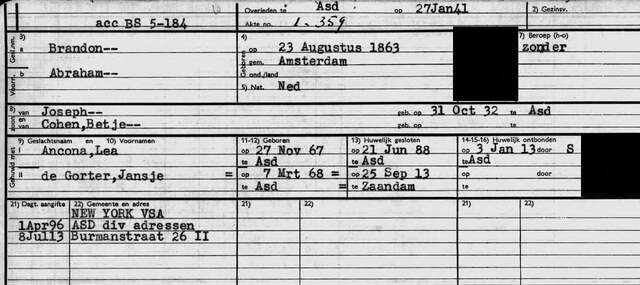 Overleden te Asd op 27Jan41 2) Gezinsv.
acc BS 5-184 Akte no. 1. 359
3) 4) 7) Beroep (h-o)
a Brandon-- op 23 Augustus 1863 zonder
gem. Amsterdam
b Abraham-- ond./land
5) Nat. Ned
8) van Joseph-- geb. op 31 Oct 32 te Asd
en van Cohen,Betje-- geb. op te
9) Geslachtsnaam en 10) Voornamen 11-12) Geboren 13) Huwelijk gesloten 14-15-16) Huwelijk ontbonden
I Ancona,Lea op 27 Nov 67 op 21 Jun 88 op 3 Jan 13 door S
te Asd te Asd te Asd
II de Gorter,Jansje = op 7 Mrt 68 = op 25 Sep 13 op door
te Asd = te Zaandam te
21) Dagt. aangifte 22) Gemeente en adres 21) 22) 21) 22)
NEW YORK VSA
1Apr96 ASD div adressen
8Jul13 Burmanstraat 26 II